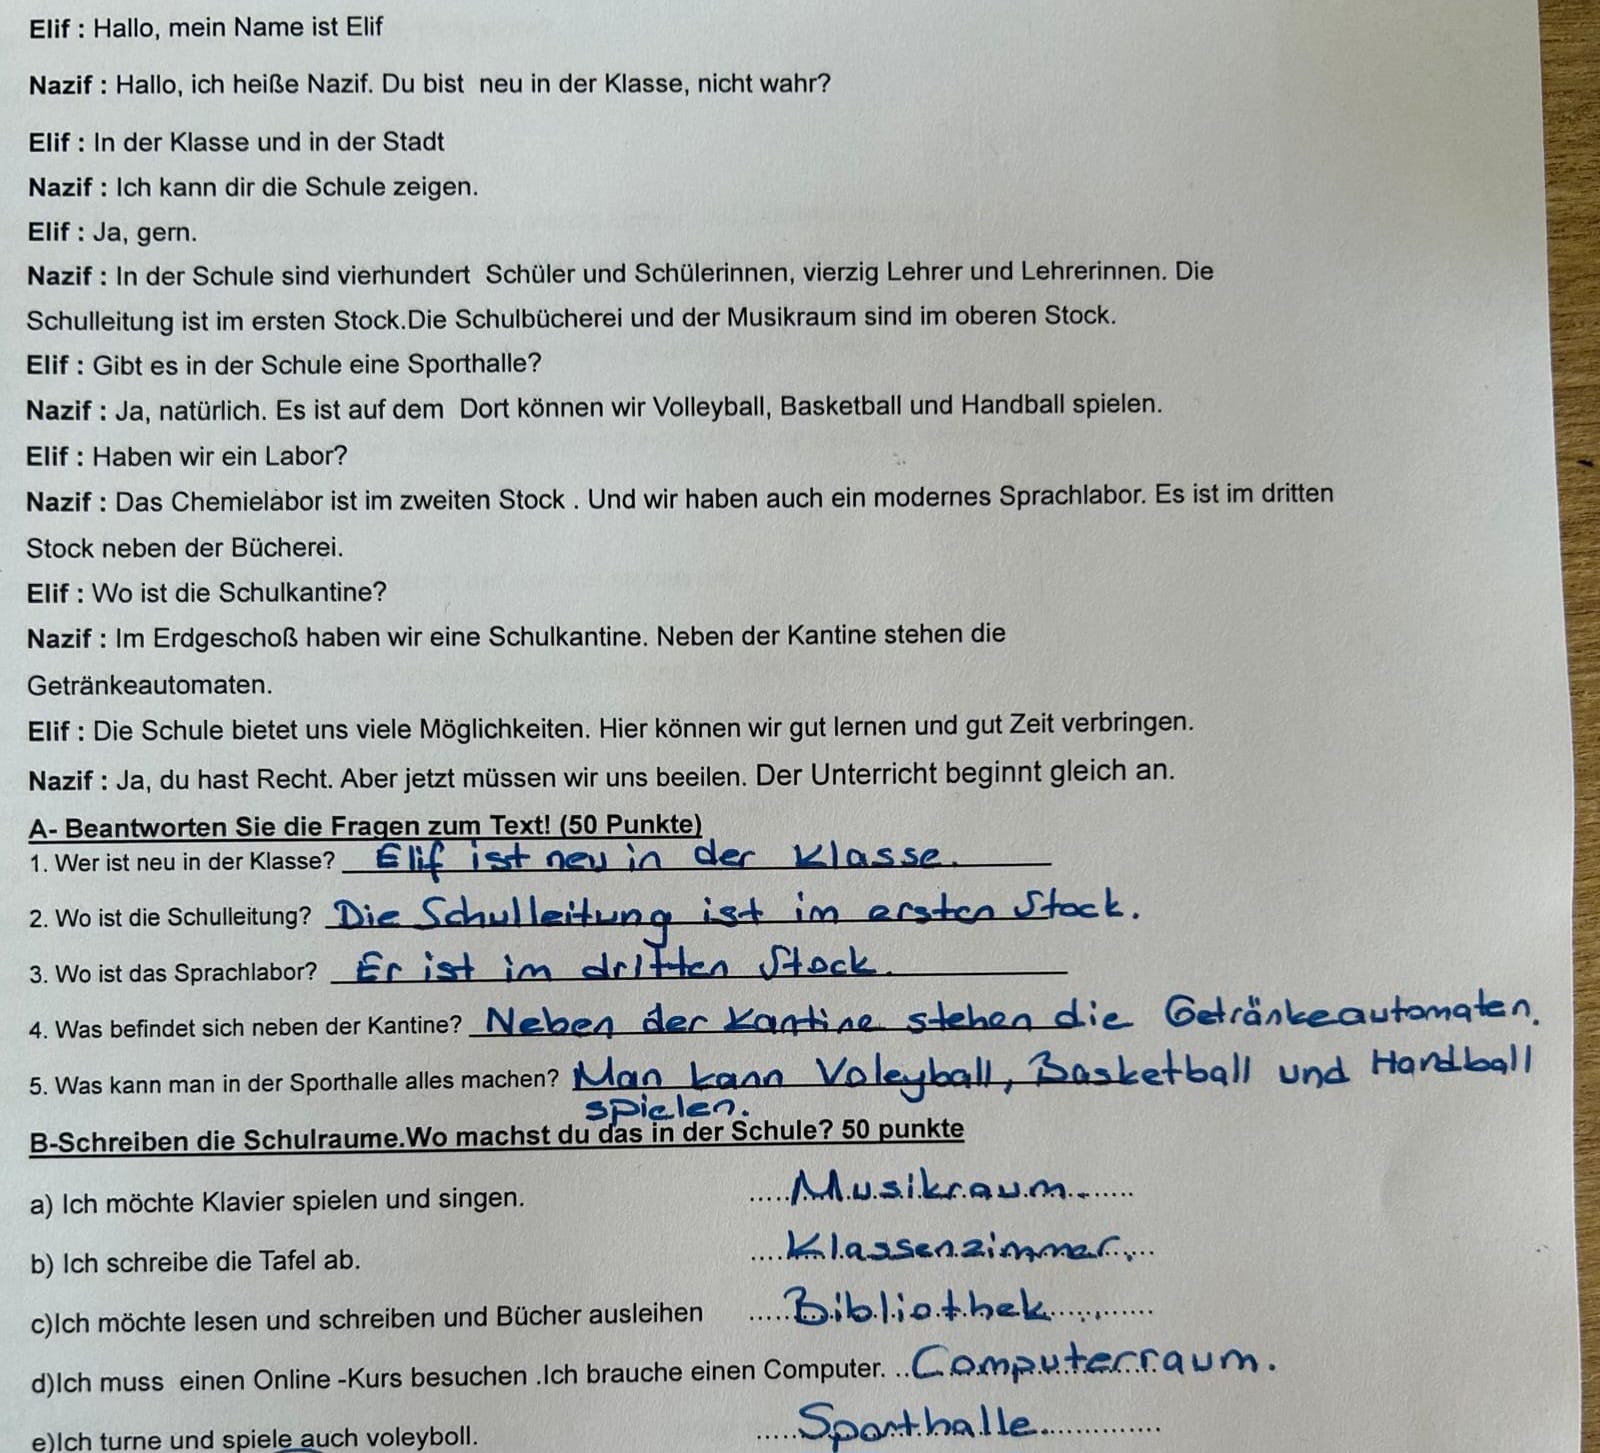 Elif : Hallo, mein Name ist Elif
Nazif : Hallo, ich heiße Nazif. Du bist neu in der Klasse, nicht wahr?
Elif : In der Klasse und in der Stadt
Nazif : Ich kann dir die Schule zeigen.
Elif : Ja, gern.
Nazif : In der Schule sind vierhundert Schüler und Schülerinnen, vierzig Lehrer und Lehrerinnen. Die
Schulleitung ist im ersten Stock.Die Schulbücherei und der Musikraum sind im oberen Stock.
Elif : Gibt es in der Schule eine Sporthalle?
Nazif : Ja, natürlich. Es ist auf dem Dort können wir Volleyball, Basketball und Handball spielen.
Elif : Haben wir ein Labor?
Nazif : Das Chemielabor ist im zweiten Stock . Und wir haben auch ein modernes Sprachlabor. Es ist im dritten
Stock neben der Bücherei.
Elif : Wo ist die Schulkantine?
Nazif : Im Erdgeschoß haben wir eine Schulkantine. Neben der Kantine stehen die
Getränkeautomaten.
Elif : Die Schule bietet uns viele Möglichkeiten. Hier können wir gut lernen und gut Zeit verbringen.
Nazif : Ja, du hast Recht. Aber jetzt müssen wir uns beeilen. Der Unterricht beginnt gleich an.
A- Beantworten Sie die Fragen zum Text! (50 Punkte)
1. Wer ist neu in der Klasse? Elif ist neu in der Klasse.
2. Wo ist die Schulleitung? Die Schulleitung ist im ersten Stock.
3. Wo ist das Sprachlabor? Er ist im dritten Stock.
4. Was befindet sich neben der Kantine? Neben der Kantine stehen die Getränkeautomaten.
5. Was kann man in der Sporthalle alles machen? Man kann Voleyball, Basketball und Handball
spielen.
B-Schreiben die Schulraume.Wo machst du das in der Schule? 50 punkte
a) Ich möchte Klavier spielen und singen. .....Musikraum.......
b) Ich schreibe die Tafel ab. ....Klassenzimmer....
c)Ich möchte lesen und schreiben und Bücher ausleihen .....Bibliothek............
d)Ich muss einen Online -Kurs besuchen .Ich brauche einen Computer. ..Computerraum.
e)Ich turne und spiele auch voleyboll. .....Sporthalle..............